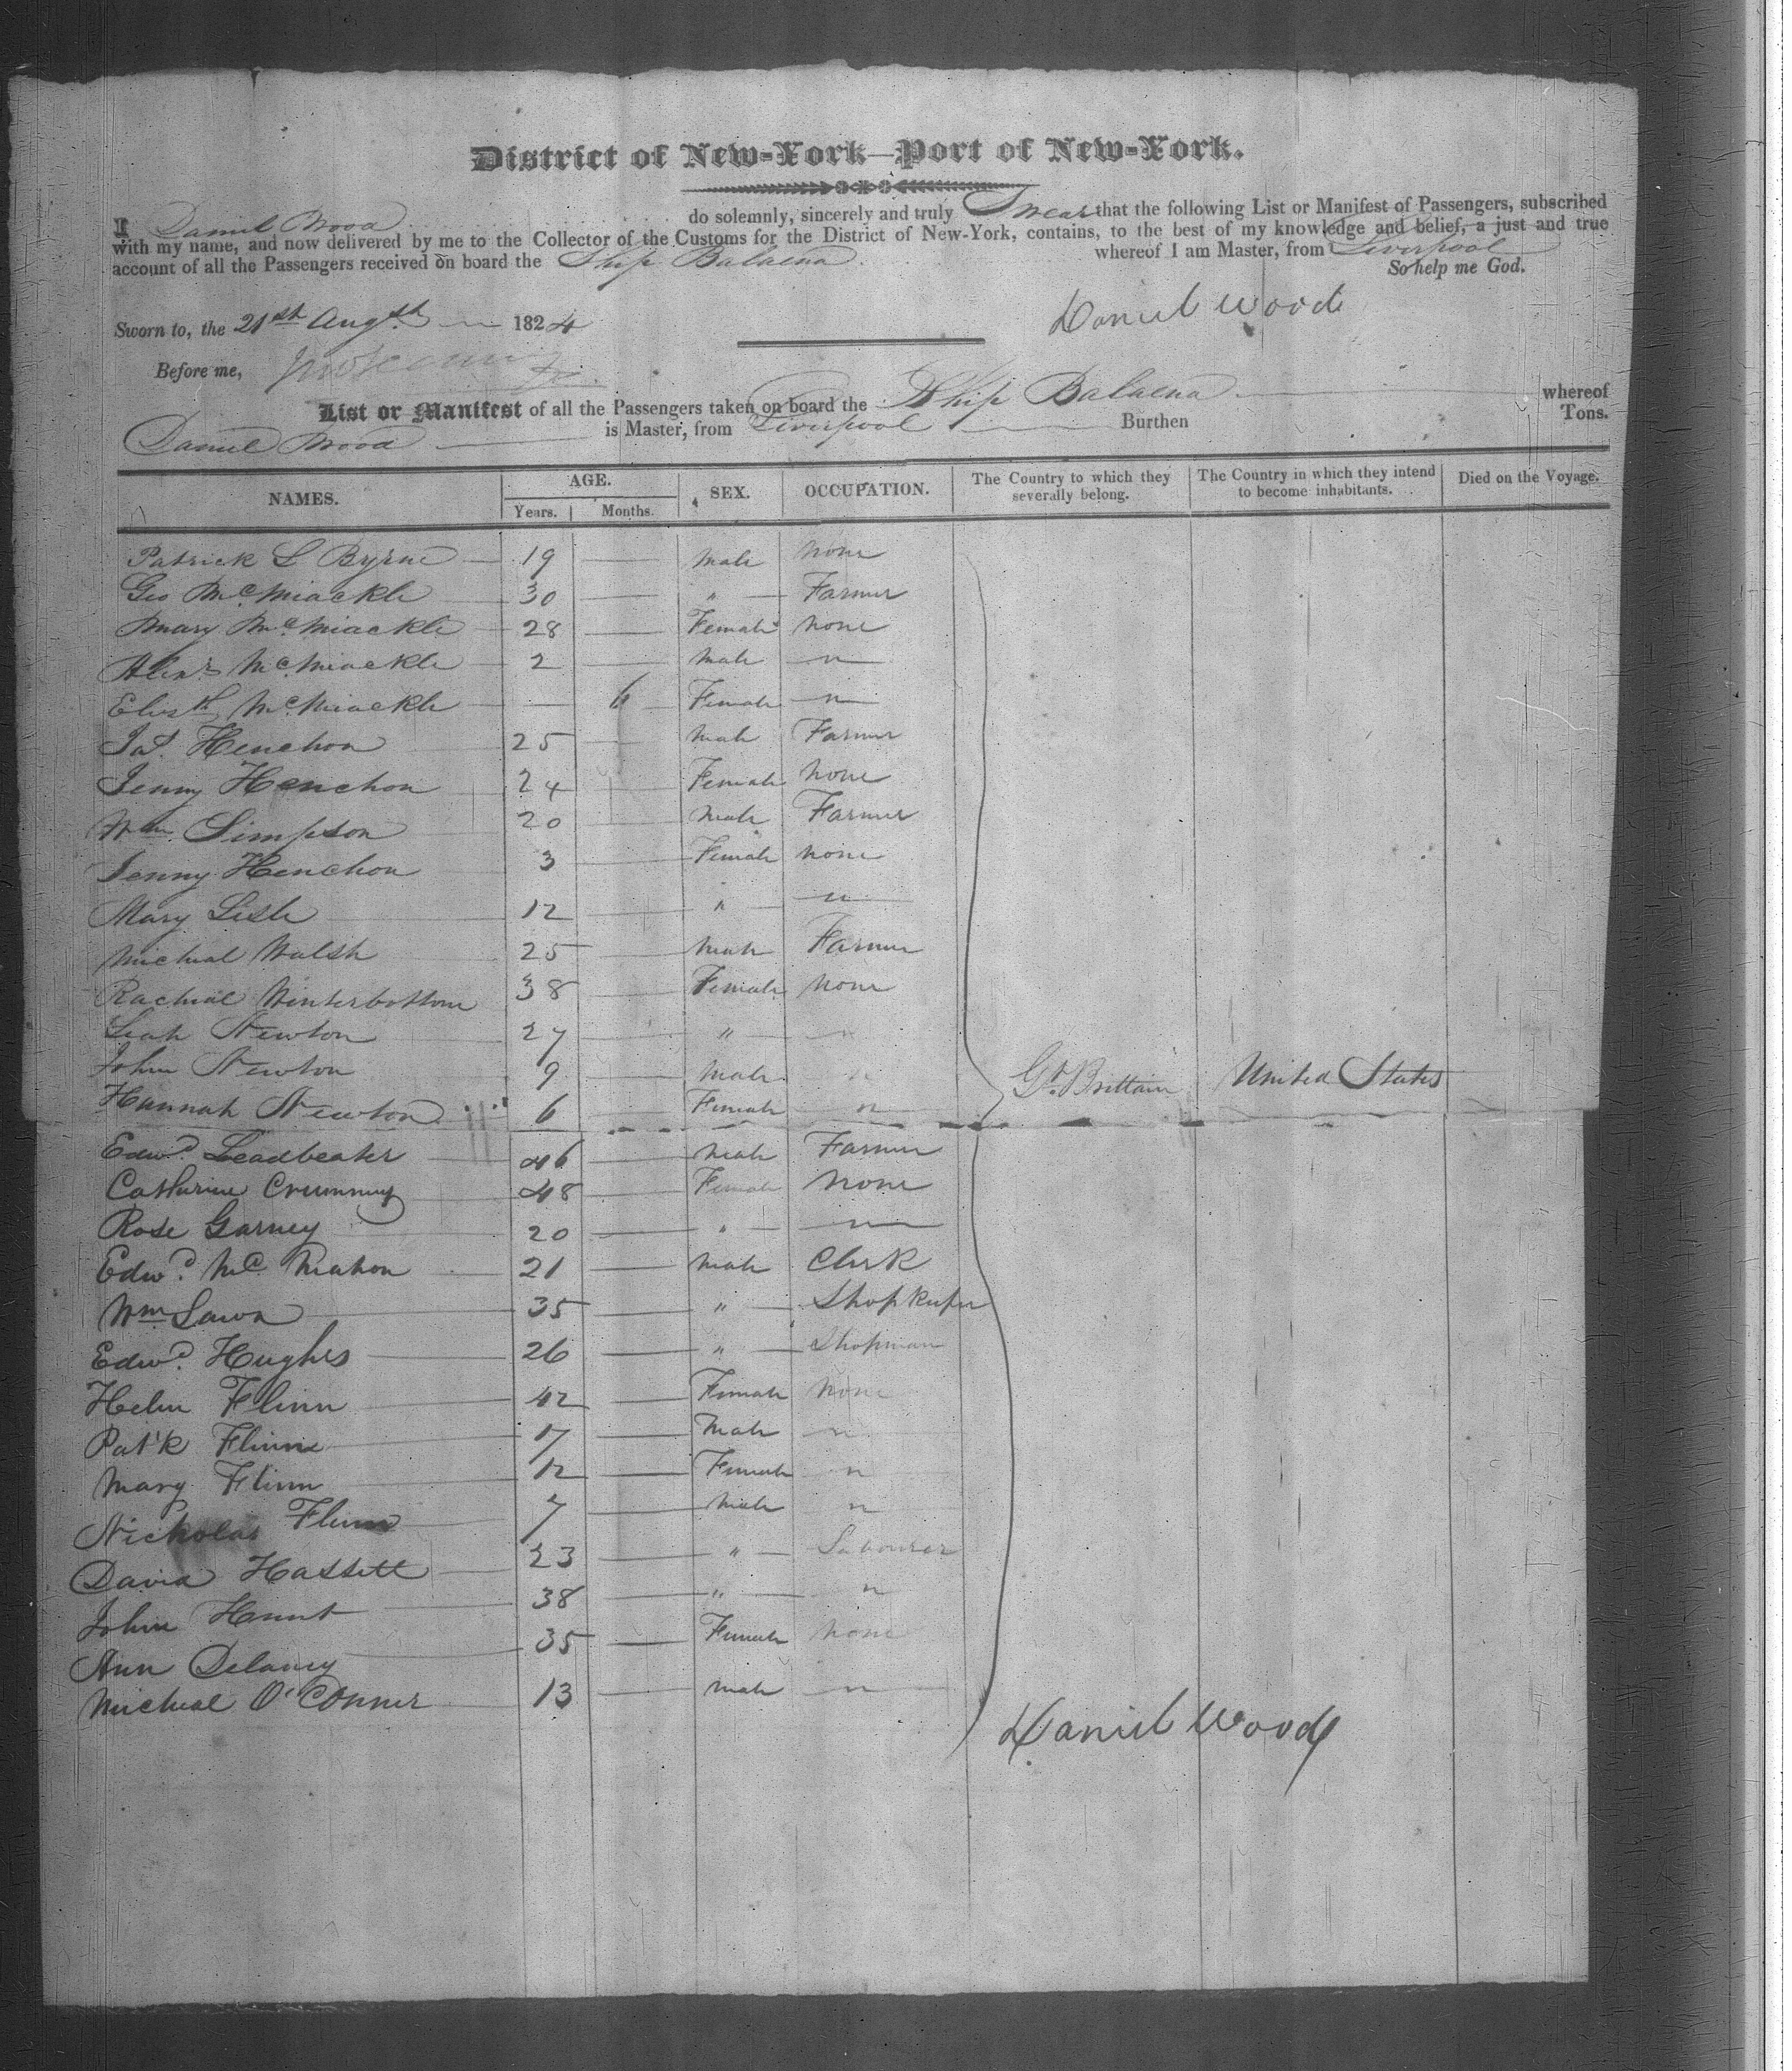 District of New-York—Port of New-York.
I Daniel Wood do solemnly, sincerely and truly Swear that the following List or Manifest of Passengers, subscribed
with my name, and now delivered by me to the Collector of the Customs for the District of New-York, contains, to the best of my knowledge and belief, a just and true
account of all the Passengers received on board the Ship Balaena whereof I am Master, from Liverpool
So help me God.
Sworn to, the 21st Augst 1824 Daniel Wood
Before me,
List or Manifest of all the Passengers taken on board the Ship Balaena whereof
Daniel Wood is Master, from Liverpool Burthen Tons.
NAMES. AGE. Years. Months. SEX. OCCUPATION. The Country to which they severally belong. The Country in which they intend to become inhabitants. Died on the Voyage.
Patrick L Byrne 19 male none
Geo McMiackle 30 " Farmer
Mary McMiackle 28 Female none
Alexr McMiackle 2 male "
Elisth McMiackle 6 Female "
Jas. Henchon 25 male Farmer
Jenny Henchon 24 Female none
Wm Simpson 20 male Farmer
Jenny Henchon 3 Female none
Mary Lisle 12 " "
Micheal Walsh 25 male Farmer
Rachael Winterbottom 38 Female none
Leah Newton 27 " "
John Newton 9 male " Gt. Brittain United States
Hannah Newton 6 Female "
Edwd. Leadbeater 46 male Farmer
Catharine Crummey 48 Female none
Rose Garney 20 " "
Edwd. Mc Mahon 21 male Clerk
Wm 35 " Shopkeeper
Edwd. Hughes 26 " Shopman
Helen Flinn 42 Female none
Pat'k Flinn 17 male "
Mary Flinn 12 Female "
Nicholas Flinn 7 male "
David Hassett 23 " Labourer
John Hunt 38 " "
Ann Delaney 35 Female none
Micheal O'Conner 13 male "
Daniel Wood